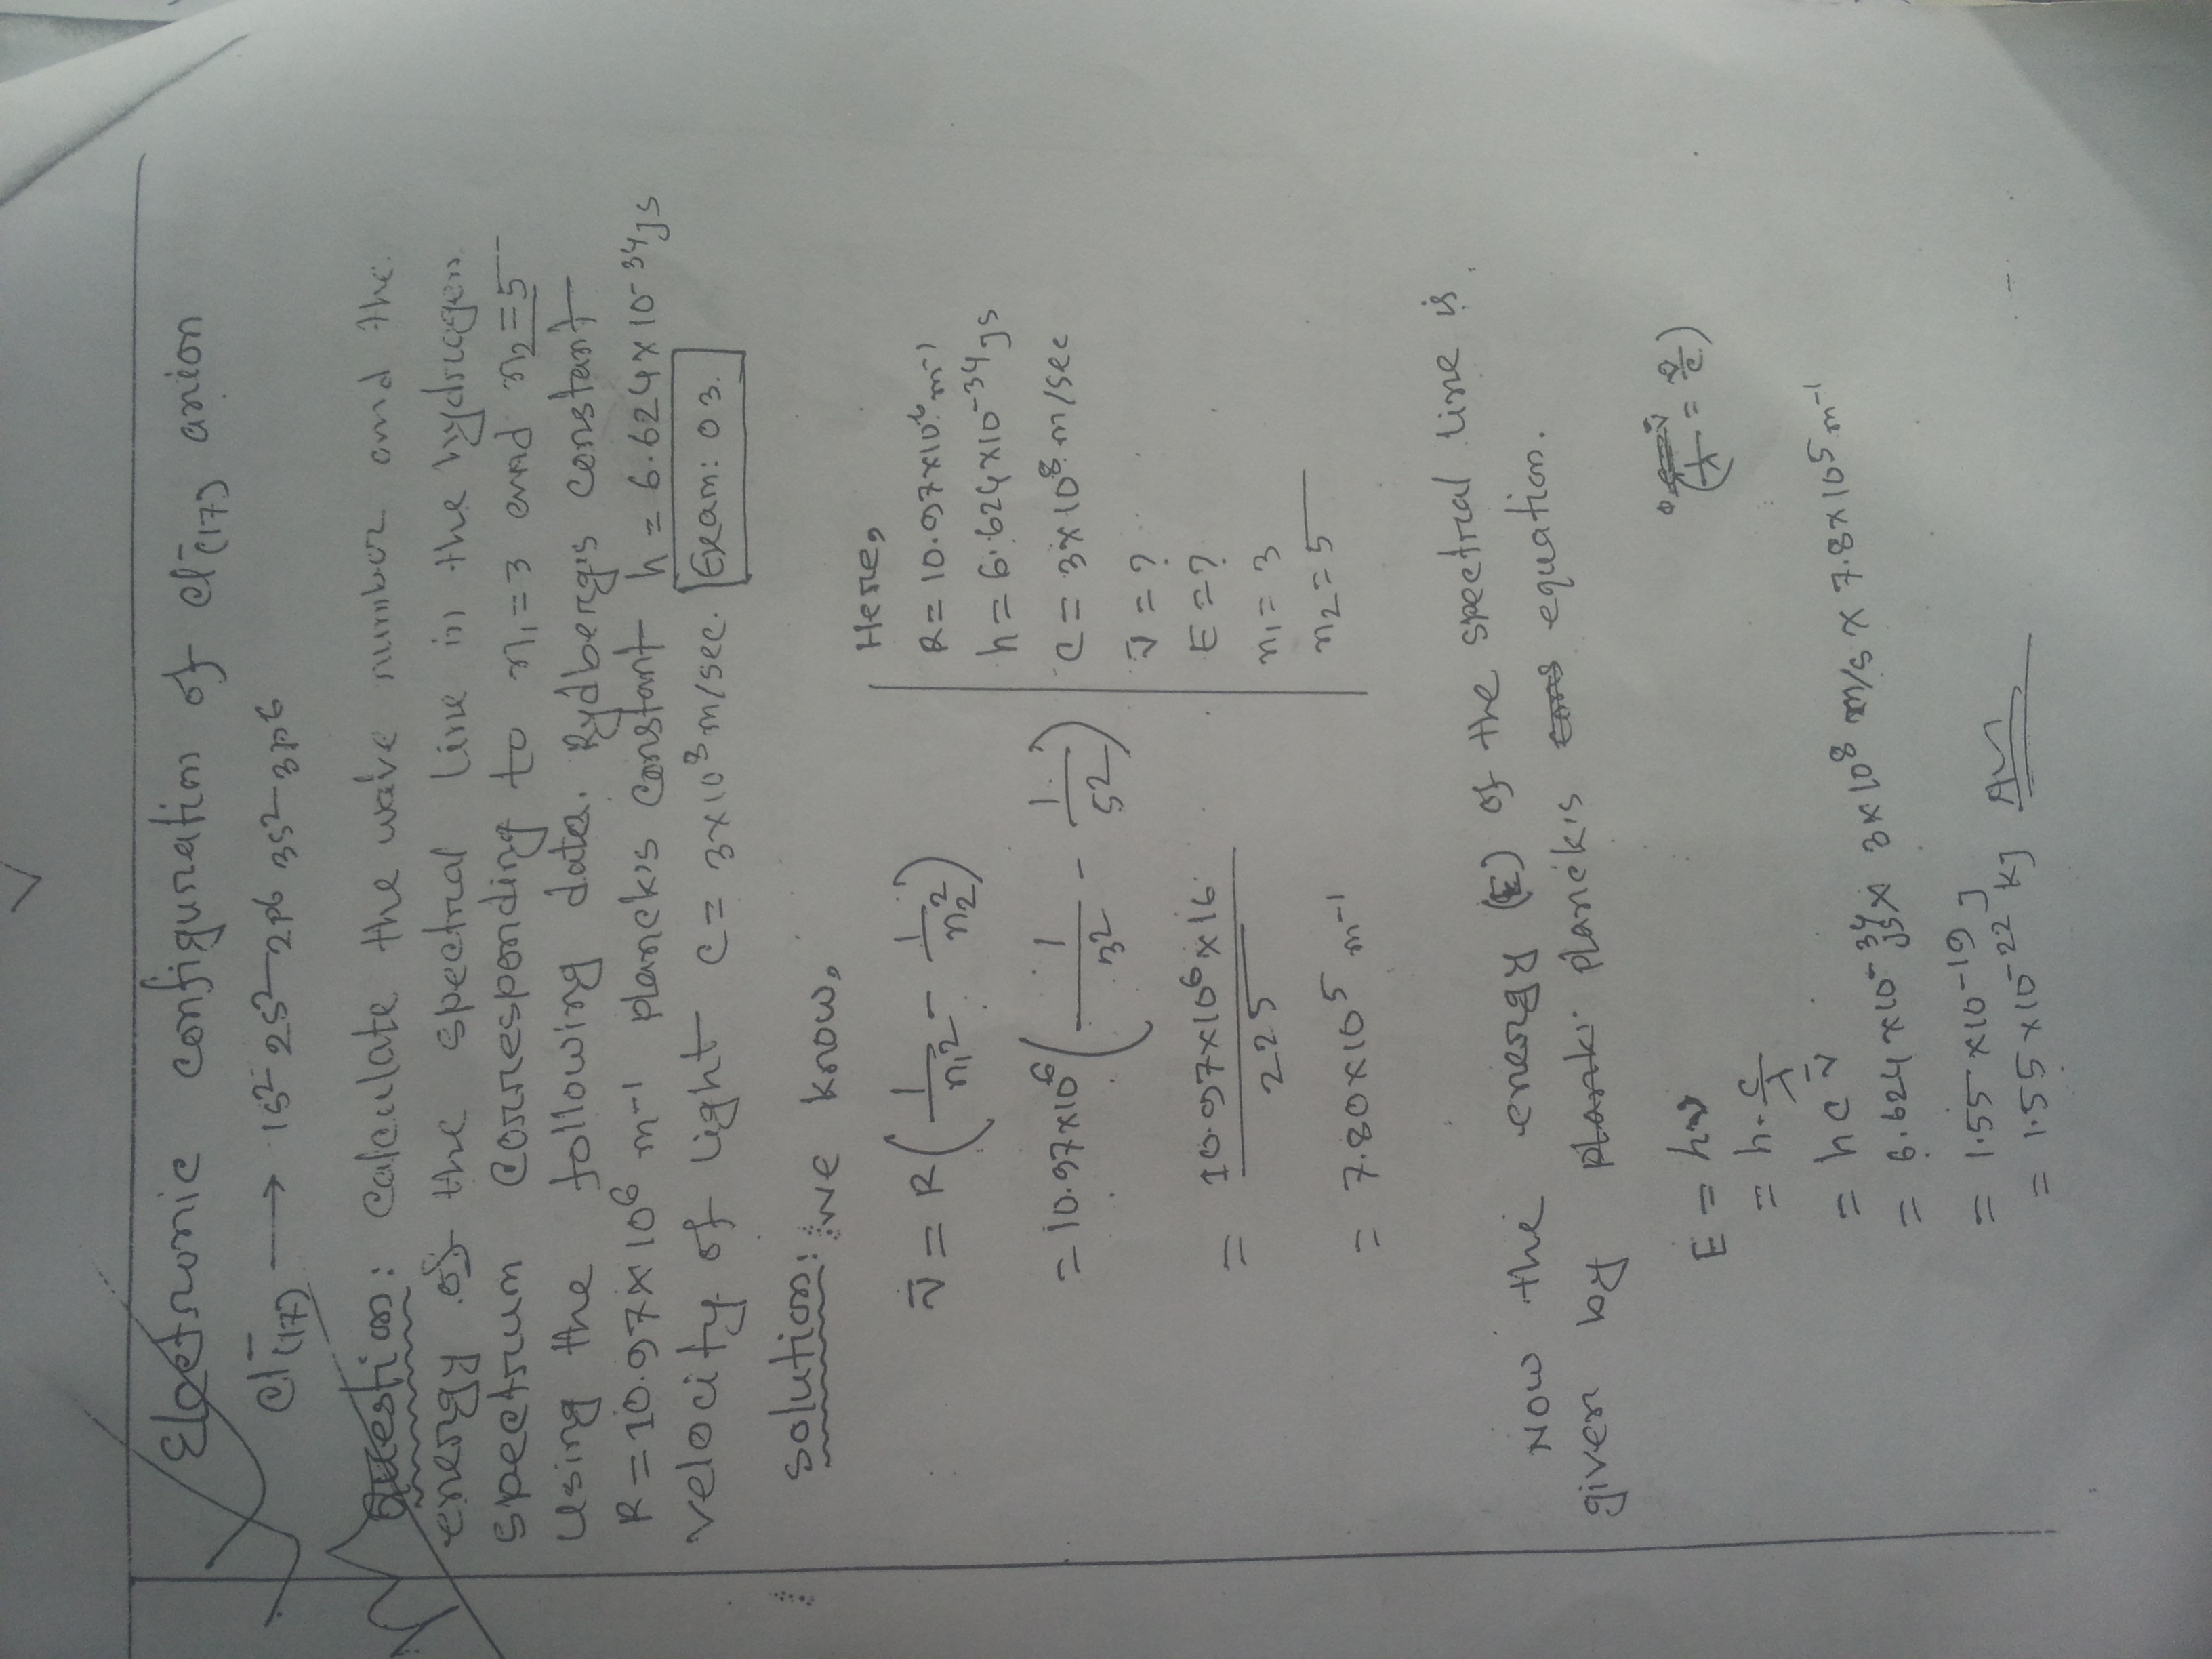 Electronic configuration of Cl⁻(17) anion
Cl⁻(17) → 1s² 2s² 2p6 3s² 3p6
Question: Calculate the wave number and the
energy of the spectral line in the hydrogen
spectrum corresponding to n₁=3 and n₂=5
using the following data. Rydberg's constant
R=10.97×10⁶ m⁻¹ planck's constant h = 6.624×10⁻³⁴Js
velocity of light C= 3×10⁸m/sec. Exam: 03.
Solution: we know,
ν̄ = R(1/n₁² - 1/n₂²)
= 10.97×10⁶(1/3² - 1/5²)
= 10.97×10⁶×16/225
= 7.80×10⁵ m⁻¹
Here,
R= 10.97×10⁶ m⁻¹
h= 6.624×10⁻³⁴Js
C= 3×10⁸ m/sec
ν̄ = ?
E = ?
n₁= 3
n₂=5
Now the energy (E) of the spectral line is
given by Plank Planck's cons equation.
E = hν
= h·c/λ
(1/λ = ν/c)
= hcν̄
= 6.624×10⁻³⁴Js× 3×10⁸ m/s × 7.8×10⁵m⁻¹
= 1.55×10⁻¹⁹ J
= 1.55×10⁻²² KJ Ans